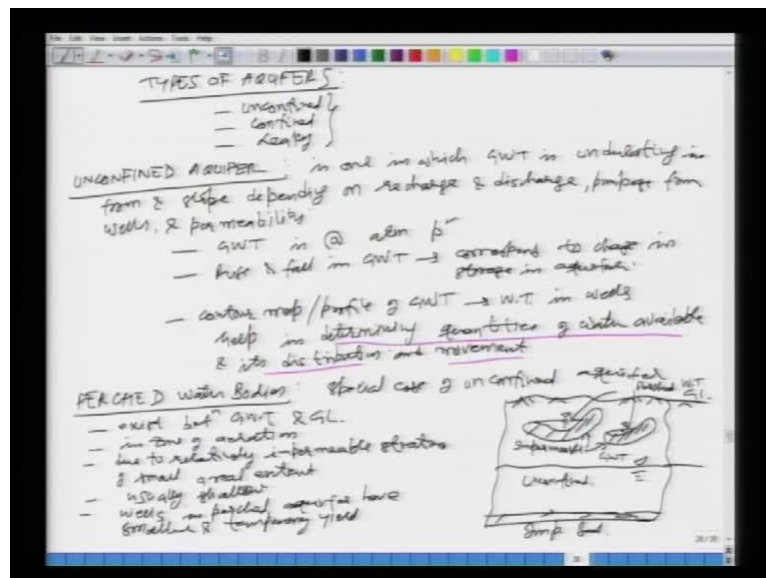 File Edit View Insert Actions Tools Help
TYPES OF AQUIFERS:
— Unconfined
— Confined
— Leaky
UNCONFINED AQUIFER: is one in which GWT is undulating in
form & slope depending on recharge & discharge, pumpage from
wells, & permeability.
— GWT is @ atm pr
— Rise & fall in GWT → correspond to change in
storage in aquifer.
— contour map/profile of GWT → W.T in wells
help in determining quantities of water available
& its distribution and movement
PERCHED Water Bodies: Special case of unconfined aquifer
— exist betn GWT & GL.
— in zone of aeration
— due to relatively impermeable stratum
of small areal extent
— usually shallow
— wells in perched aquifer have
smaller & temporary yield
Perched W.T
GL
Impermeable
GWT
Unconfined
Imp bed.
28/38
38